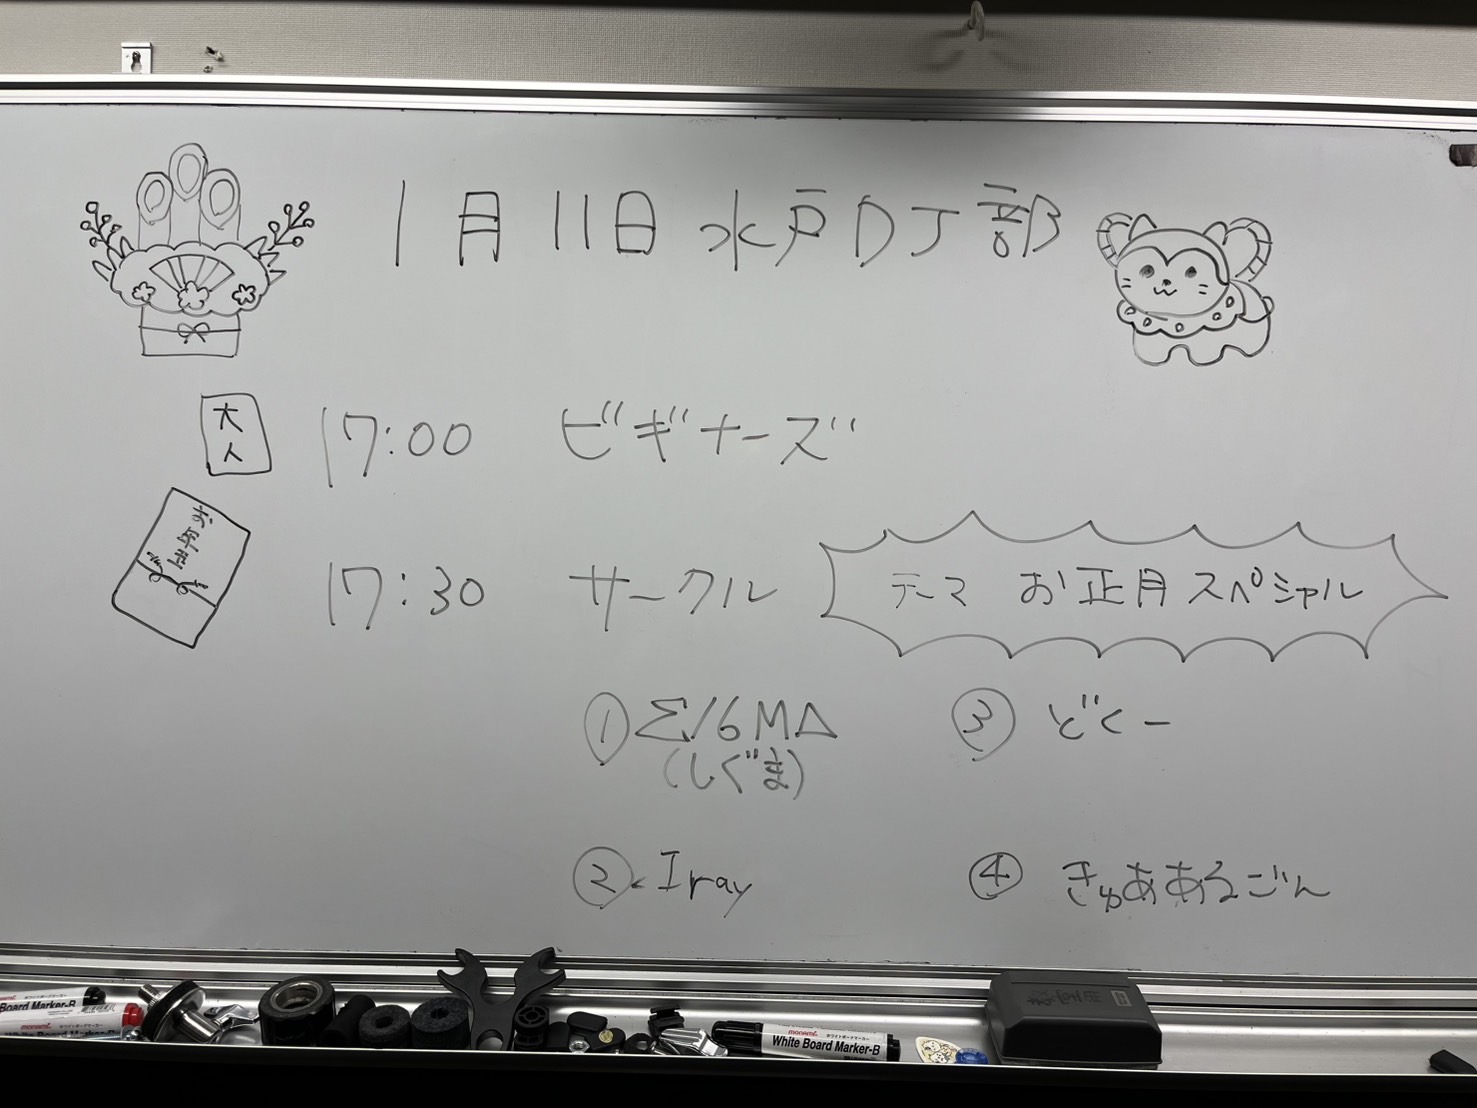 1月11日 水戸DJ部
大入
17:00 ビギナーズ
お年玉
17:30 サークル テーマ お正月スペシャル
① Σ/6MΔ
(しぐま)
③ どくー
② Iray
④ きゅああるごん
Board Marker-B
monami
monami ホワイトボードマーカー
White Board Marker-B